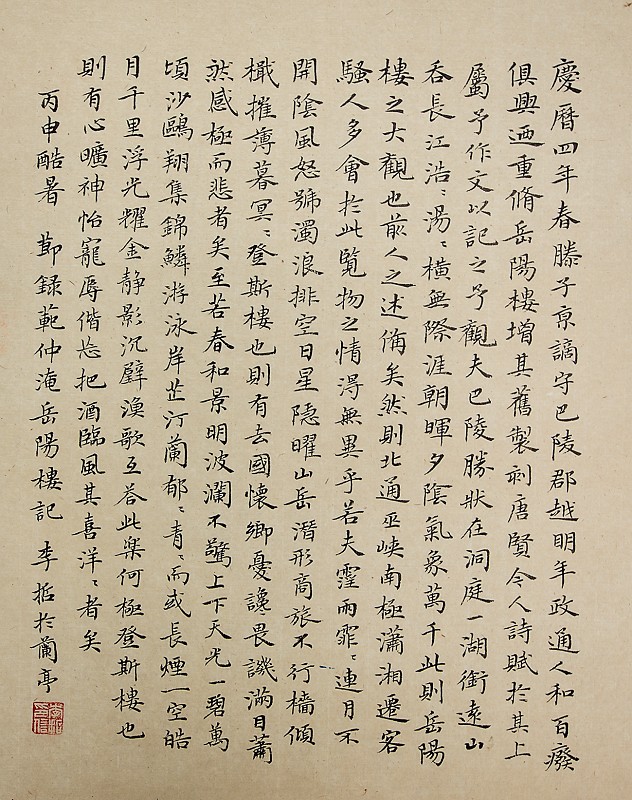 慶曆四年春滕子京謫守巴陵郡越明年政通人和百癈
俱興迺重脩岳陽樓增其舊製刻唐賢今人詩賦於其上
屬予作文以記之予觀夫巴陵勝狀在洞庭一湖銜遠山
吞長江浩〻湯〻橫無際涯朝暉夕陰氣象萬千此則岳陽
樓之大觀也前人之述備矣然則北通巫峽南極瀟湘遷客
騷人多會於此覽物之情得無異乎若夫霪雨霏〻連月不
開陰風怒號濁浪排空日星隱曜山岳潛形商旅不行檣傾
檝摧薄暮冥〻登斯樓也則有去國懷鄉憂讒畏譏滿目蕭
然感極而悲者矣至若春和景明波瀾不驚上下天光一碧萬
頃沙鷗翔集錦鱗游泳岸芷汀蘭郁〻青〻而或長煙一空皓
月千里浮光耀金静影沉璧漁歌互荅此樂何極登斯樓也
則有心曠神怡寵辱偕忘把酒臨風其喜洋〻者矣
丙申酷暑 節錄範仲淹岳陽樓記 李哲於蘭亭